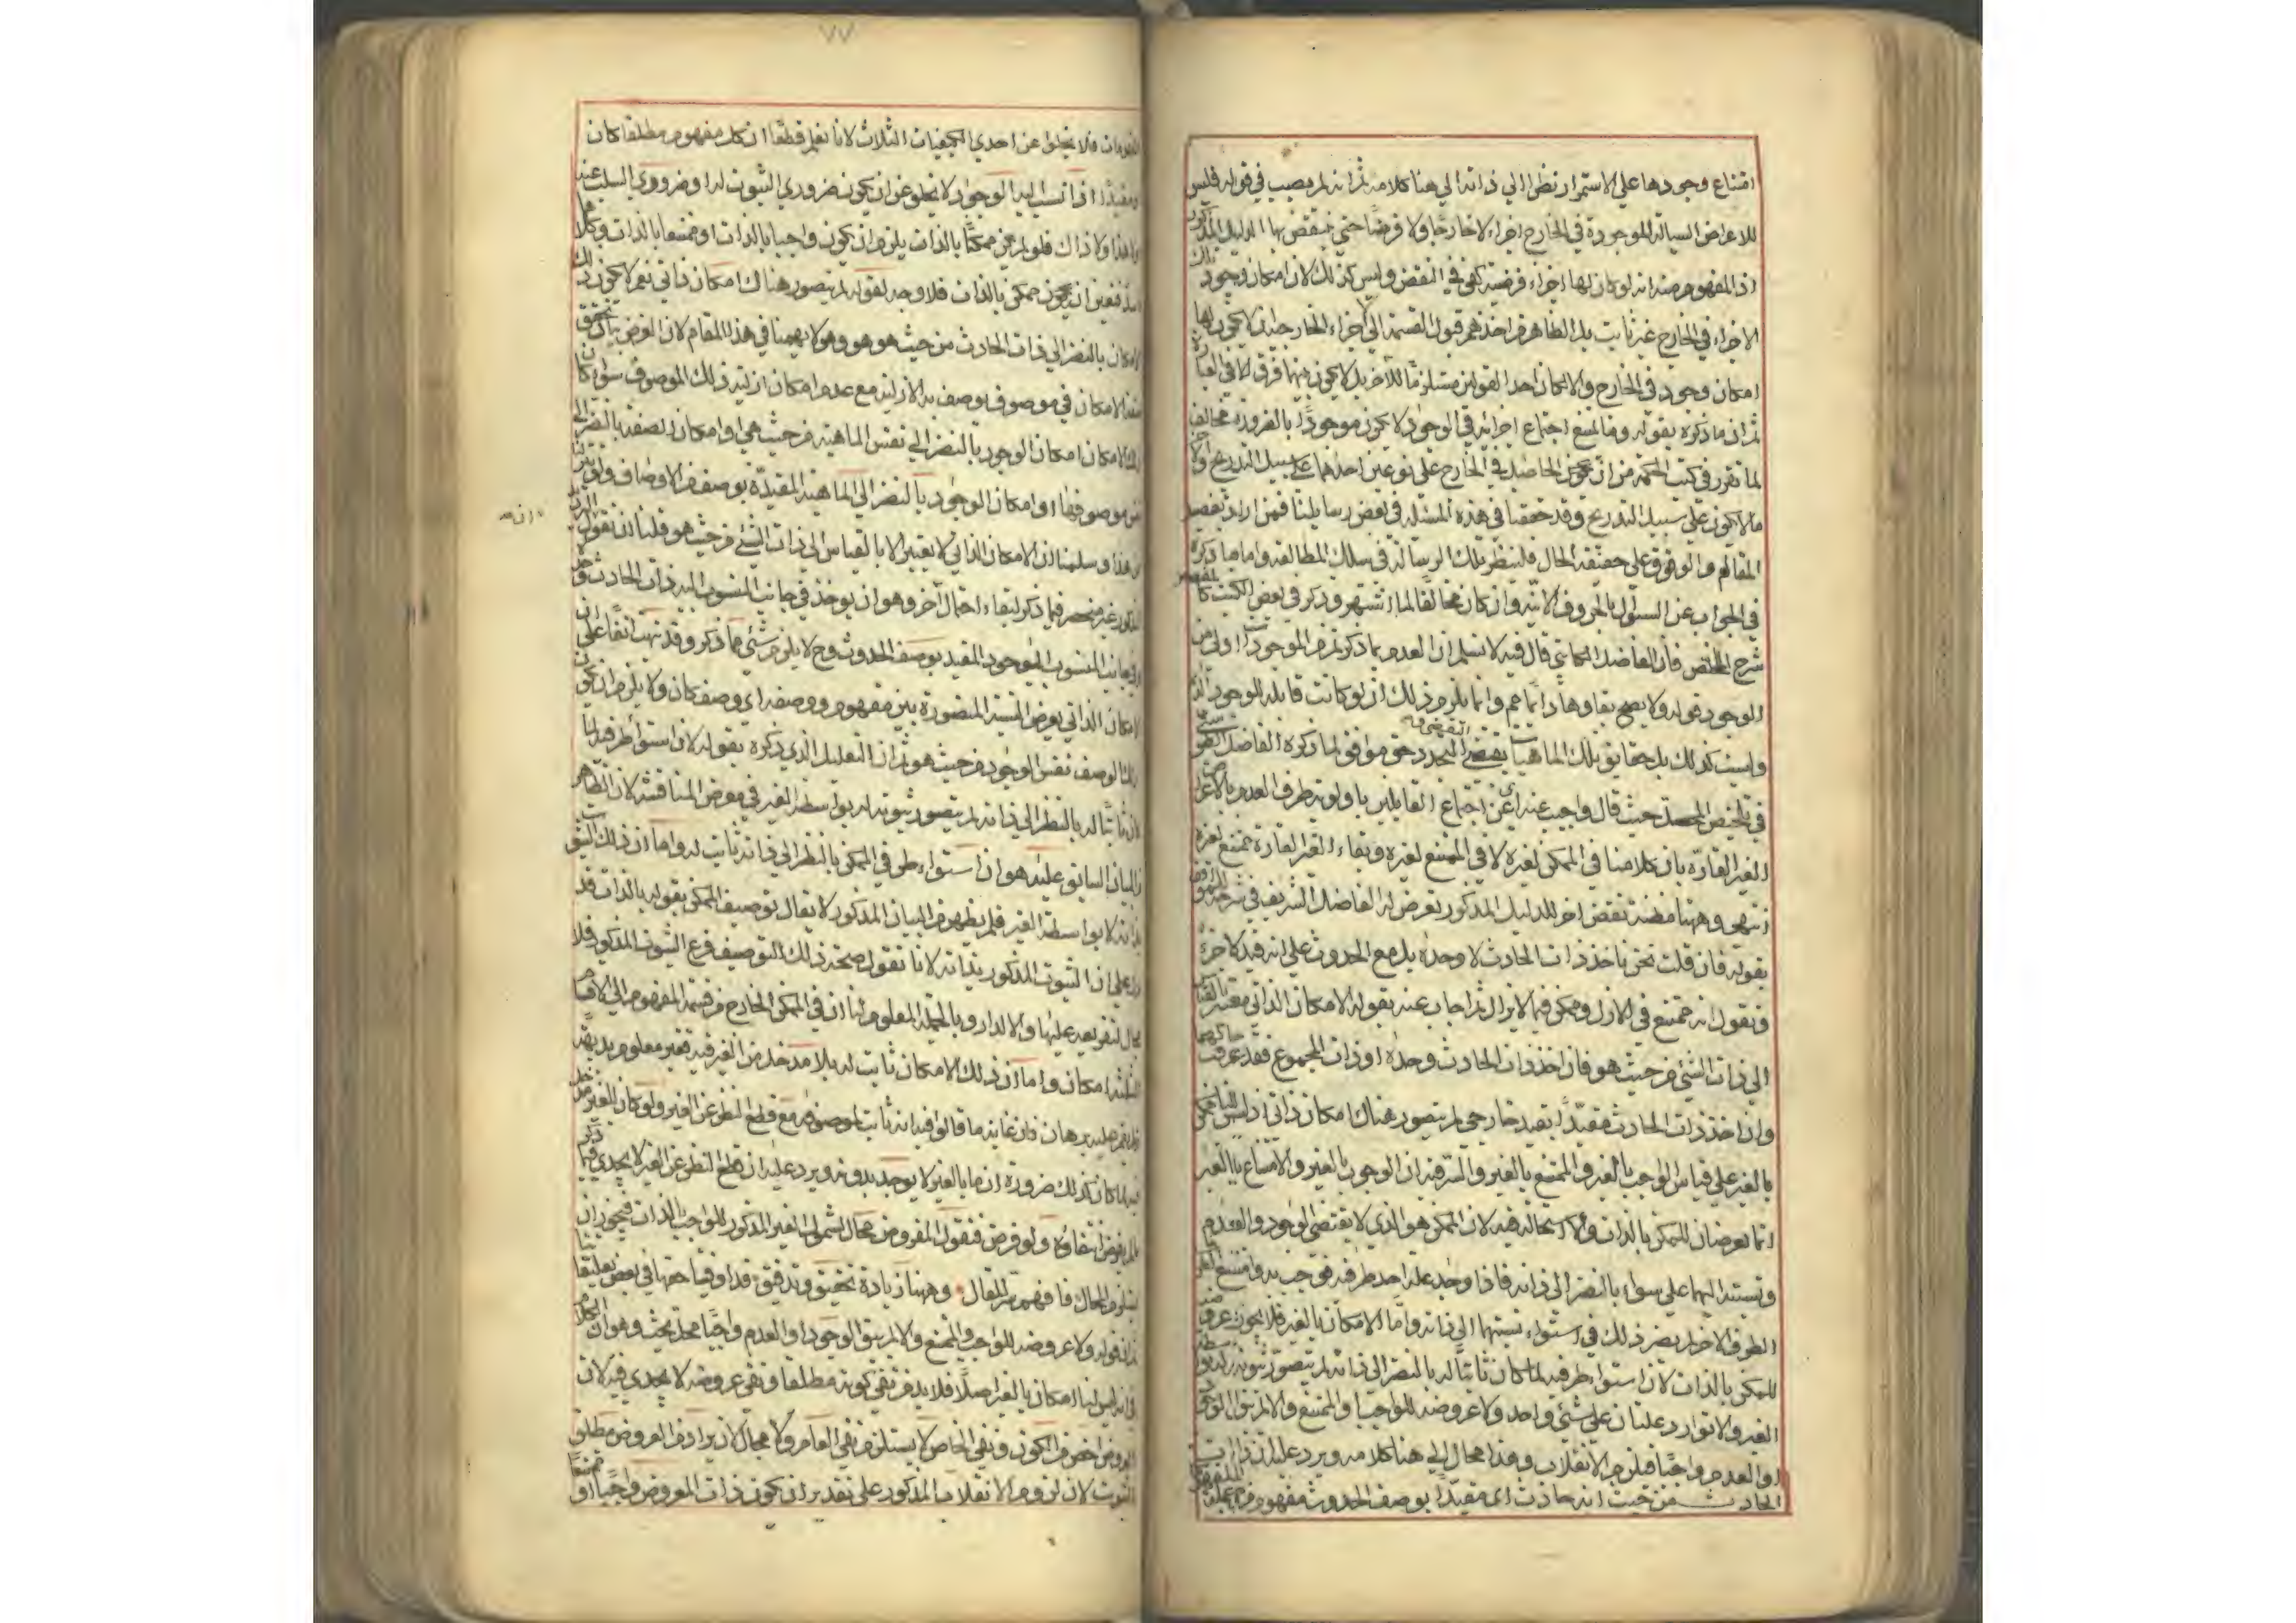 امتناع وجودها على الاستمرار نظرا الي ذاته الي هنا كلامه ثم انه لم يصب في قوله فليس
للاعراض السيالة الموجودة في الخارج اجزاء لا خارجا ولا فرضا حتى ينتقض بها الدليل المذكور
اذ المفهوم منه انه لو كان لها اجزاء فرضية كفى في النقض وليس كذلك لان امكان وجود تلك
الاجزاء في الخارج غير ثابت بل الظاهر من اخذهم قبول القسمة الي الاجزاء الخارجية ان لا يكون لها
امكان وجود في الخارج والا لكان احد القولين مستلزما للآخر بل لا يكون بينهما فرق الا في العبارة
ثم ان ما ذكره بقوله وما امتنع اجتماع اجزائه في الوجود لا يكون موجودا بالضرورة مخالف
لما تقرر في كتب الحكمة من ان الحاصل في الخارج على نوعين احدهما على سبيل التدريج و
ما لا يكون على سبيل التدريج وقد حققنا في هذه المسئلة في بعض رسايلنا فمن اراد تفصيل
المقام والوقوف على حقيقة الحال فلينظر تلك الرسالة في سلك المطالعة واما ما ذكره
في الجواب عن السئوال بالحروف الآنية وان كان مخالفا لما اشتهر وذكر في بعض الكتب كالمفصل
شرح الملخص فان الفاضل الكاتبي قال فيه لا نسلم ان العدم بما ذكرتم من الموجودات اولى من
الوجود قوله ولا يصح بقاوها دائما قلنا مم وانما يلزم ذلك ان لو كانت قابلة للوجود
وليست كذلك بل حقايق تلك الماهيات يقتضي التجدد حق موافق لما ذكره الفاضل الطوسي
في تلخيص المحصل حيث قال واجيب عنه اي عن اجتماع القايلين باولوية طرف العدم بالاعراض
الغير القارة بان كلامنا في الممكن لغيره لا في الممتنع لغيره وبقاء الغير القارة ممتنع لغيره
انتهى وههنا مظنة نقض اخر للدليل المذكور تعرض له الفاضل الشريف في شرحه للمواقف
بقوله فان قلت نحن ناخذ ذات الحادث لا وحده بل مع الحدوث على انه قيد لا جزء
ونقول انه ممتنع في الازل وممكن فيما لا يزال ثم اجاب عنه بقوله الامكان الذاتي معتبر بالقياس
الي ذات الشئ من حيث هو فان اخذ ذات الحادث وحده او ذات المجموع فقد عرفت حالهما
وان اخذ ذات الحادث مقيدا بقيد خارجي لم يتصور هناك امكان ذاتي اذ ليس لنا ممكن
بالغير على قياس الواجب بالغير والممتنع بالغير والسر فيه ان الوجوب بالغير والامتناع بالغير
انما يعرضان للممكن بالذات ولا استحالة فيه لان الممكن هو الذي لا يقتضي الوجود والعدم
ونسبته اليهما على سواء بالنضر الي ذاته فاذا وجد علة احد طرفيه فوجب به وامتنع
الطرف الاخر لم يضر ذلك في استواء نسبتهما الي ذاته واما الامكان بالغير فلا يجوز عروضه
للممكن بالذات لان استواء طرفيه لما كان ثابتا له بالنضر الي ذاته لم يتصور ثبوته له بواسطة
الغير والا توارد علتان على شئ واحد ولا عروضه للواجب او الممتنع والا لم يبق الوجود
او العدم واجبا فيلزم الانقلاب وهذا محال الي هنا كلامه ويرد عليه ان ذات
الحادث من حيث انه حادث اي مقيدا بوصف الحدوث مفهوم من جملة المفهومات
٧٧
المفهومات فلا يخلو عن احدي الكيفيات الثلاث لانا نعلم قطعا ان كل مفهوم مطلقا كان
او مقيدا اذا نسب اليه الوجود لا يخلو عن ان يكون ضروري الثبوت له او ضروري السلب عنه
او لا هذا ولا ذاك فلو لم يكن ممكنا بالذات يلزم ان يكون واجبا بالذات او ممتنعا بالذات وكلاهما
فتعين ان يكون ممكن بالذات فلا وجه لقوله لم يتصور هناك امكان ذاتي نعم لا يكون ذلك
الامكان بالنضر الي ذات الحادث من حيث هو هو وهو لا يهمنا في هذا المقام لان الغرض بيان تحقق
هذا الامكان في موصوف بوصف به الازلية مع عدم امكان ازلية ذلك الموصوف سواء كان
ذلك الامكان امكان الوجود بالنضر الي نفس الماهية من حيث هي او امكان الصفة بالنضر الي
موصوفها او امكان الوجود بالنضر الي الماهية المقيدة بوصف من الاوصاف ولو
عن هذا وسلمنا ان الامكان الذاتي لا يعتبر الا بالقياس الي ذات الشئ من حيث هو فلنا ان نقول الترديد
المذكور غير منحصر فيما ذكر لبقاء احتمال آخر وهو ان يوخذ في جانب المنسوب اليه ذات الحادث وحده
وفي جانب المنسوب الموجود المقيد بوصف الحدوث وح لا يلزم شئ مما ذكر وقد نبهت آنفا على ان
الامكان الذاتي يعرض النسبة المتصورة بين مفهوم ووصفه اي وصف كان ولا يلزم ان يكون
ذلك الوصف نفس الوجود من حيث هو ثم ان التعليل الذي ذكره بقوله لان استواء طرفيه لما
كان ثابتا له بالنظر الي ذاته لم يتصور ثبوته له بواسطة الغير في معرض المناقشة لان الظاهر
البيان السابق عليه هو ان استواء طرفي الممكن بالنظر الي ذاته ثابت له واما ان ذلك الثبوت
لذاته لا بواسطة الغير فلم يظهر من البيان المذكور لا يقال توصيف الممكن بقوله بالذات قد
دل على ان الثبوت المذكور بذاته لانا نقول صحة ذلك التوصيف فرع الثبوت المذكور فلا
مجال لتفريعه عليها والا لدار وبالجملة المعلوم لنا ان في الممكن الخارج من قسمة المفهوم الي الاقسام
الثلثة امكان واما ان ذلك الامكان ثابت له بلا مدخل من الغير فيه فغير معلوم بديهة
ولم يقم عليه برهان فان غاية ما قالوا فيه انه ثابت لموصوفه مع قطع النظر عن الغير ولو كان للغير مدخل
فيه لما كان كذلك ضرورة ان ما بالغير لا يوجد بدونه ويرد عليه ان قطع النظر عن الغير لا يجدي فيما ذكر
ما لم يفرض انتفاؤه ولو فرض فنقول المفروض محال لشمول الغير المذكور للواجب بالذات فيجوز ان
يستلزم المحال فافهم سر المقال وههنا زيادة تحقيق وتدقيق قد اوفينا حقها في بعض تعليقاتنا
ثم ان قوله ولا عروضه للواجب والممتنع والا لم يبق الوجود او العدم واجبا محل بحث وهو ان الكلام
في انه ليس لنا امكان بالغير اصلا فلا بد من نفي كونه مطلقا ونفي عروضه لا يجدي فيه لان
العروض اخص من الكون ونفي الخاص لا يستلزم نفي العام ولا مجال لان يراد من العروض مطلق
الثبوت لان لزوم الانقلاب المذكور على تقدير ان يكون ذات المعروض واجبا او ممتنعا